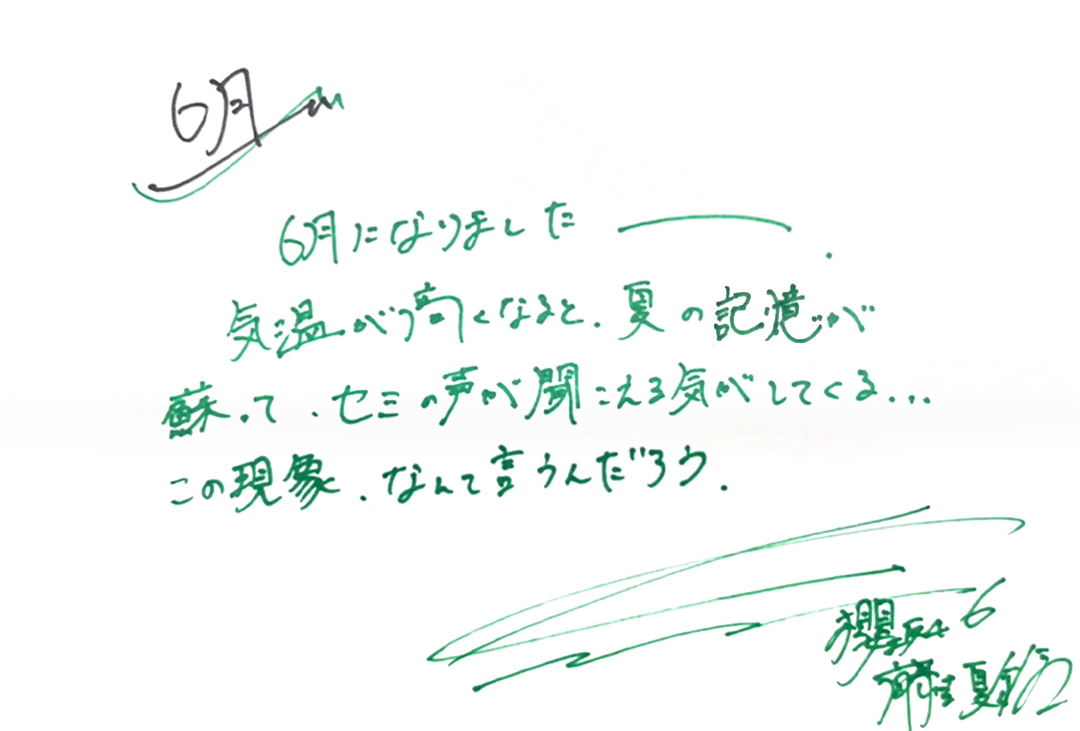 6月
6月になりました ― .
気温が高くなると、夏の記憶が
蘇って、セミの声が聞こえる気がしてくる...
この現象、なんて言うんだろう.
櫻坂46
藤吉夏鈴